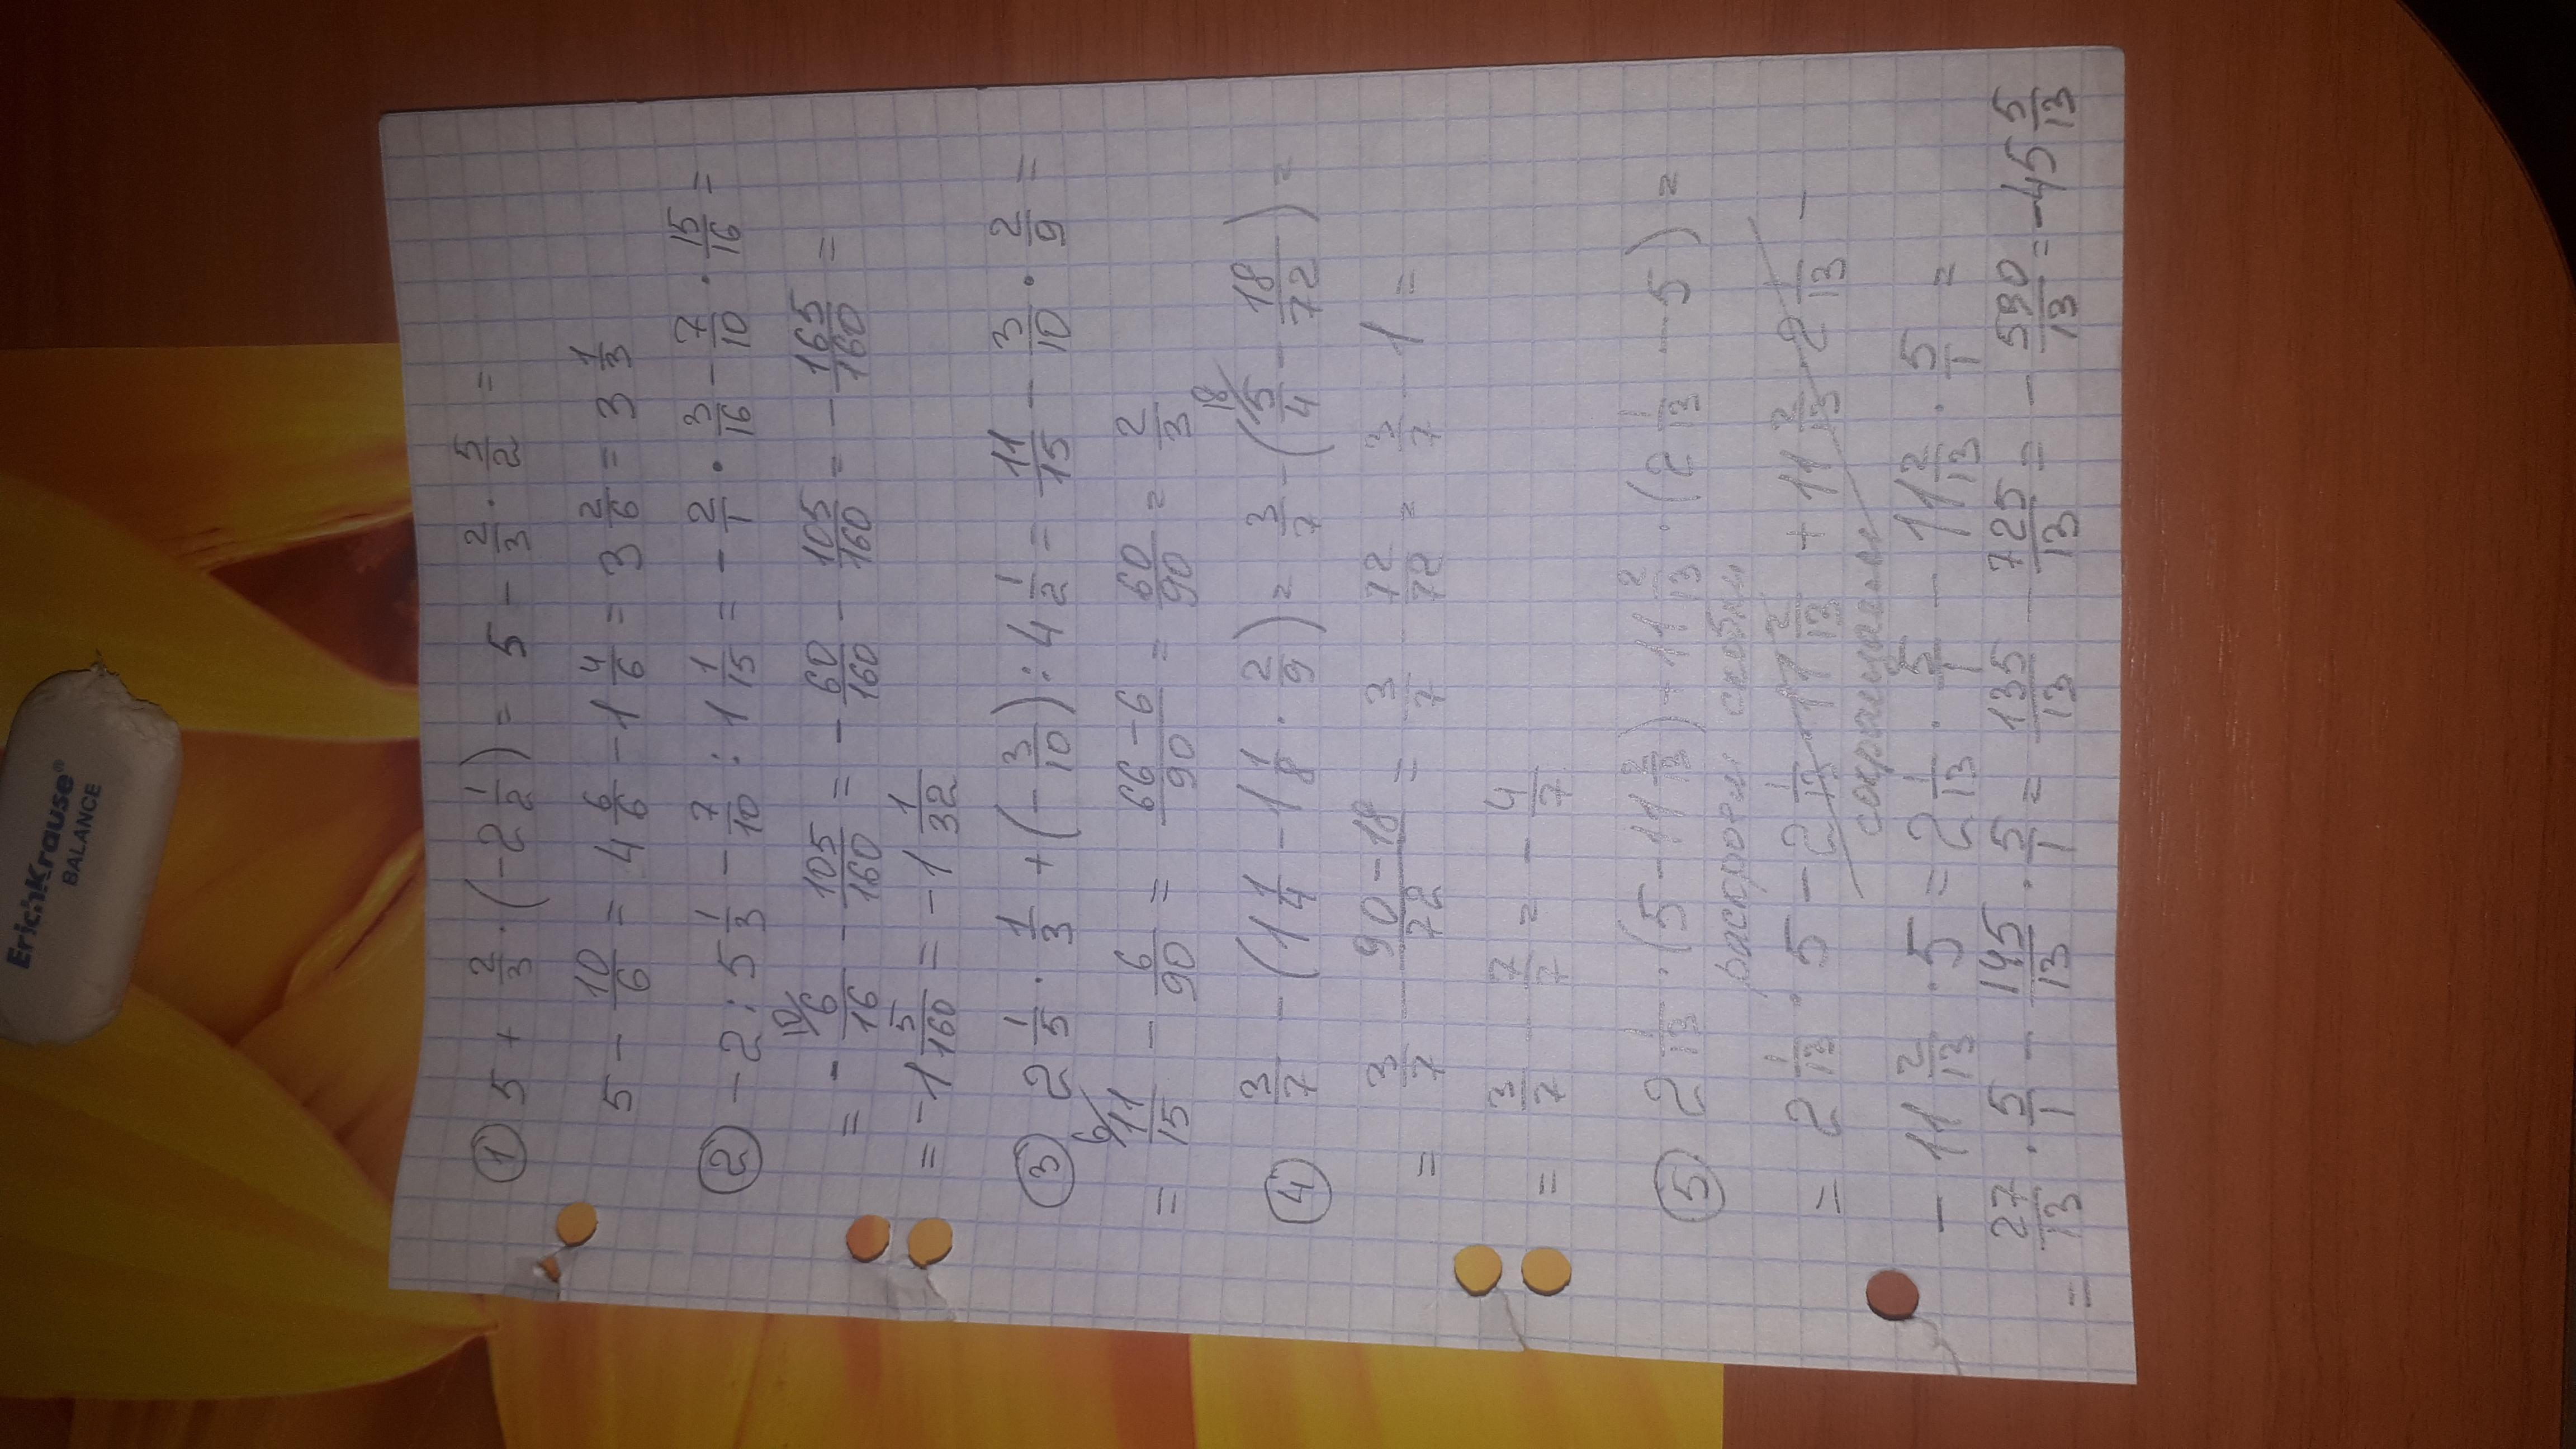 ErichKrause®
BALANCE
① 5 + 2/3 · (-2 1/2) = 5 - 2/3 · 5/2 =
5 - 10/6 = 4 6/6 - 1 4/6 = 3 2/6 = 3 1/3
② -2 : 5 1/3 - 7/10 : 1 1/15 = - 2/1 · 3/16 - 7/10 · 15/16 =
= - 6/16 - 105/160 = - 60/160 - 105/160 = - 165/160 =
= -1 5/160 = -1 1/32
③ 2 1/5 · 1/3 + (- 3/10) : 4 1/2 = 11/15 - 3/10 · 2/9 =
= 11/15 - 6/90 = 66-6/90 = 60/90 = 2/3
④ 3/7 - (1 1/4 - 1 1/8 · 2/9) = 3/7 - (5/4 - 18/72) =
= 3/7 - 90-18/72 = 3/7 - 72/72 = 3/7 - 1 =
= 3/7 - 7/7 = - 4/7
⑤ 2 1/13 · (5 - 11 2/13) + 11 2/13 · (2 1/13 - 5) =
раскроем скобки
= 2 1/13 · 5 - 2 1/13 · 11 2/13 + 11 2/13 · 2 1/13 -
сокращаем
- 11 2/13 · 5 = 2 1/13 · 5/1 - 11 2/13 · 5/1 =
= 27/13 · 5/1 - 145/13 · 5/1 = 135/13 - 725/13 = - 590/13 = -45 5/13